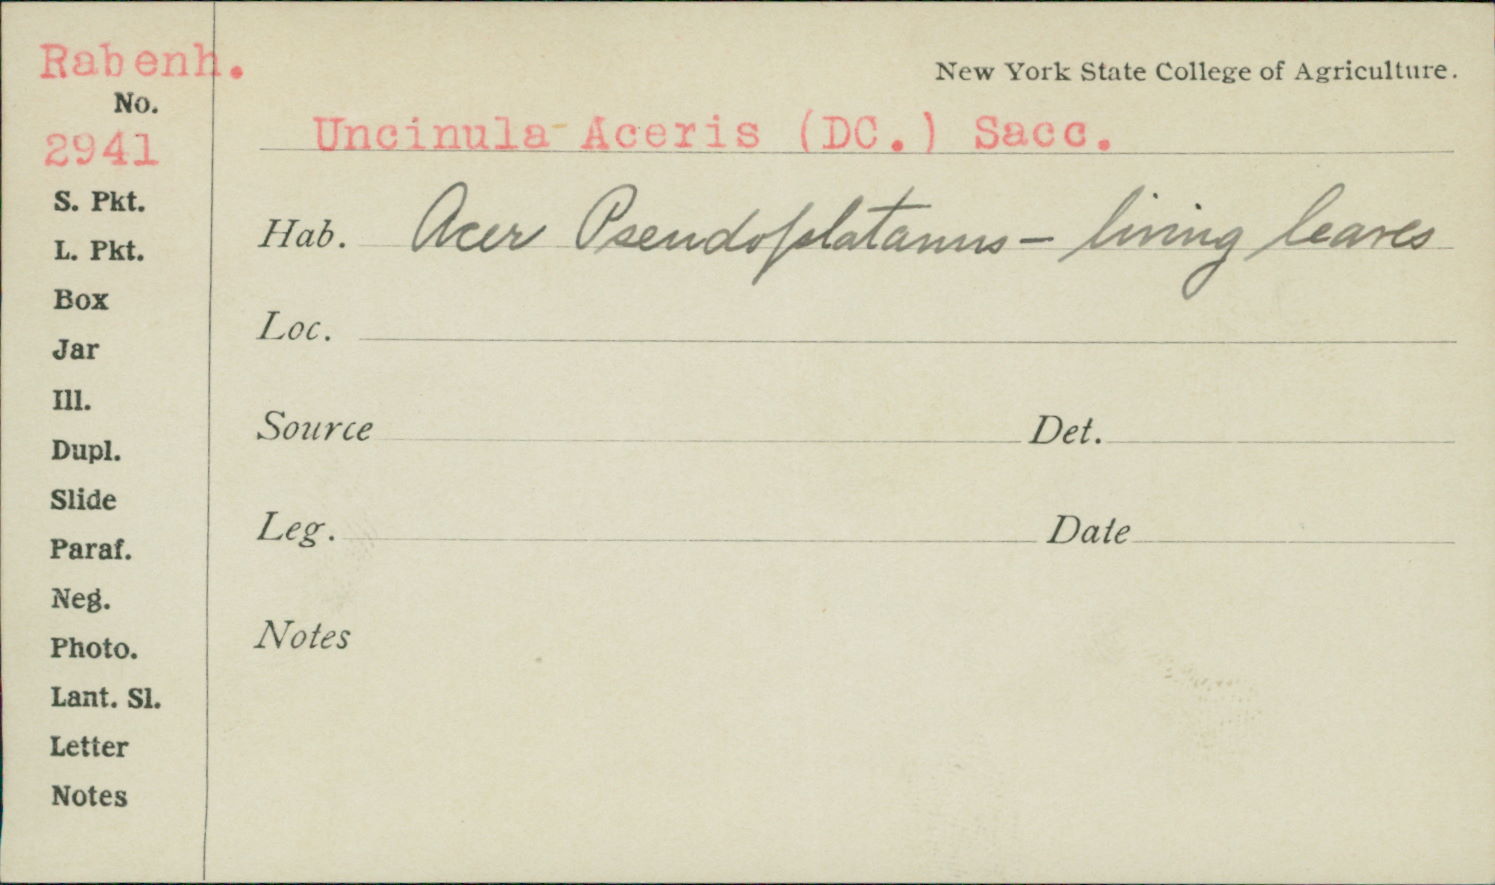 Rabenh.
No.
2941
S. Pkt.
L. Pkt.
Box
Jar
Ill.
Dupl.
Slide
Paraf.
Neg.
Photo.
Lant. Sl.
Letter
Notes
New York State College of Agriculture.
Uncinula Aceris (DC.) Sacc.
Hab. Acer Pseudoplatanus - living leaves
Loc.
Source Det.
Leg. Date
Notes